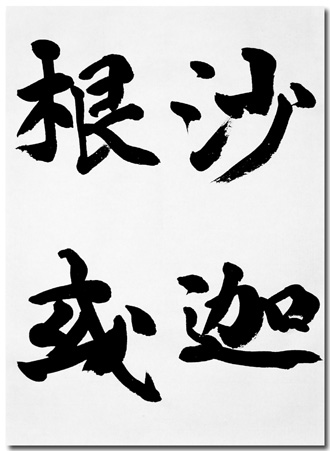 沙迦
根或